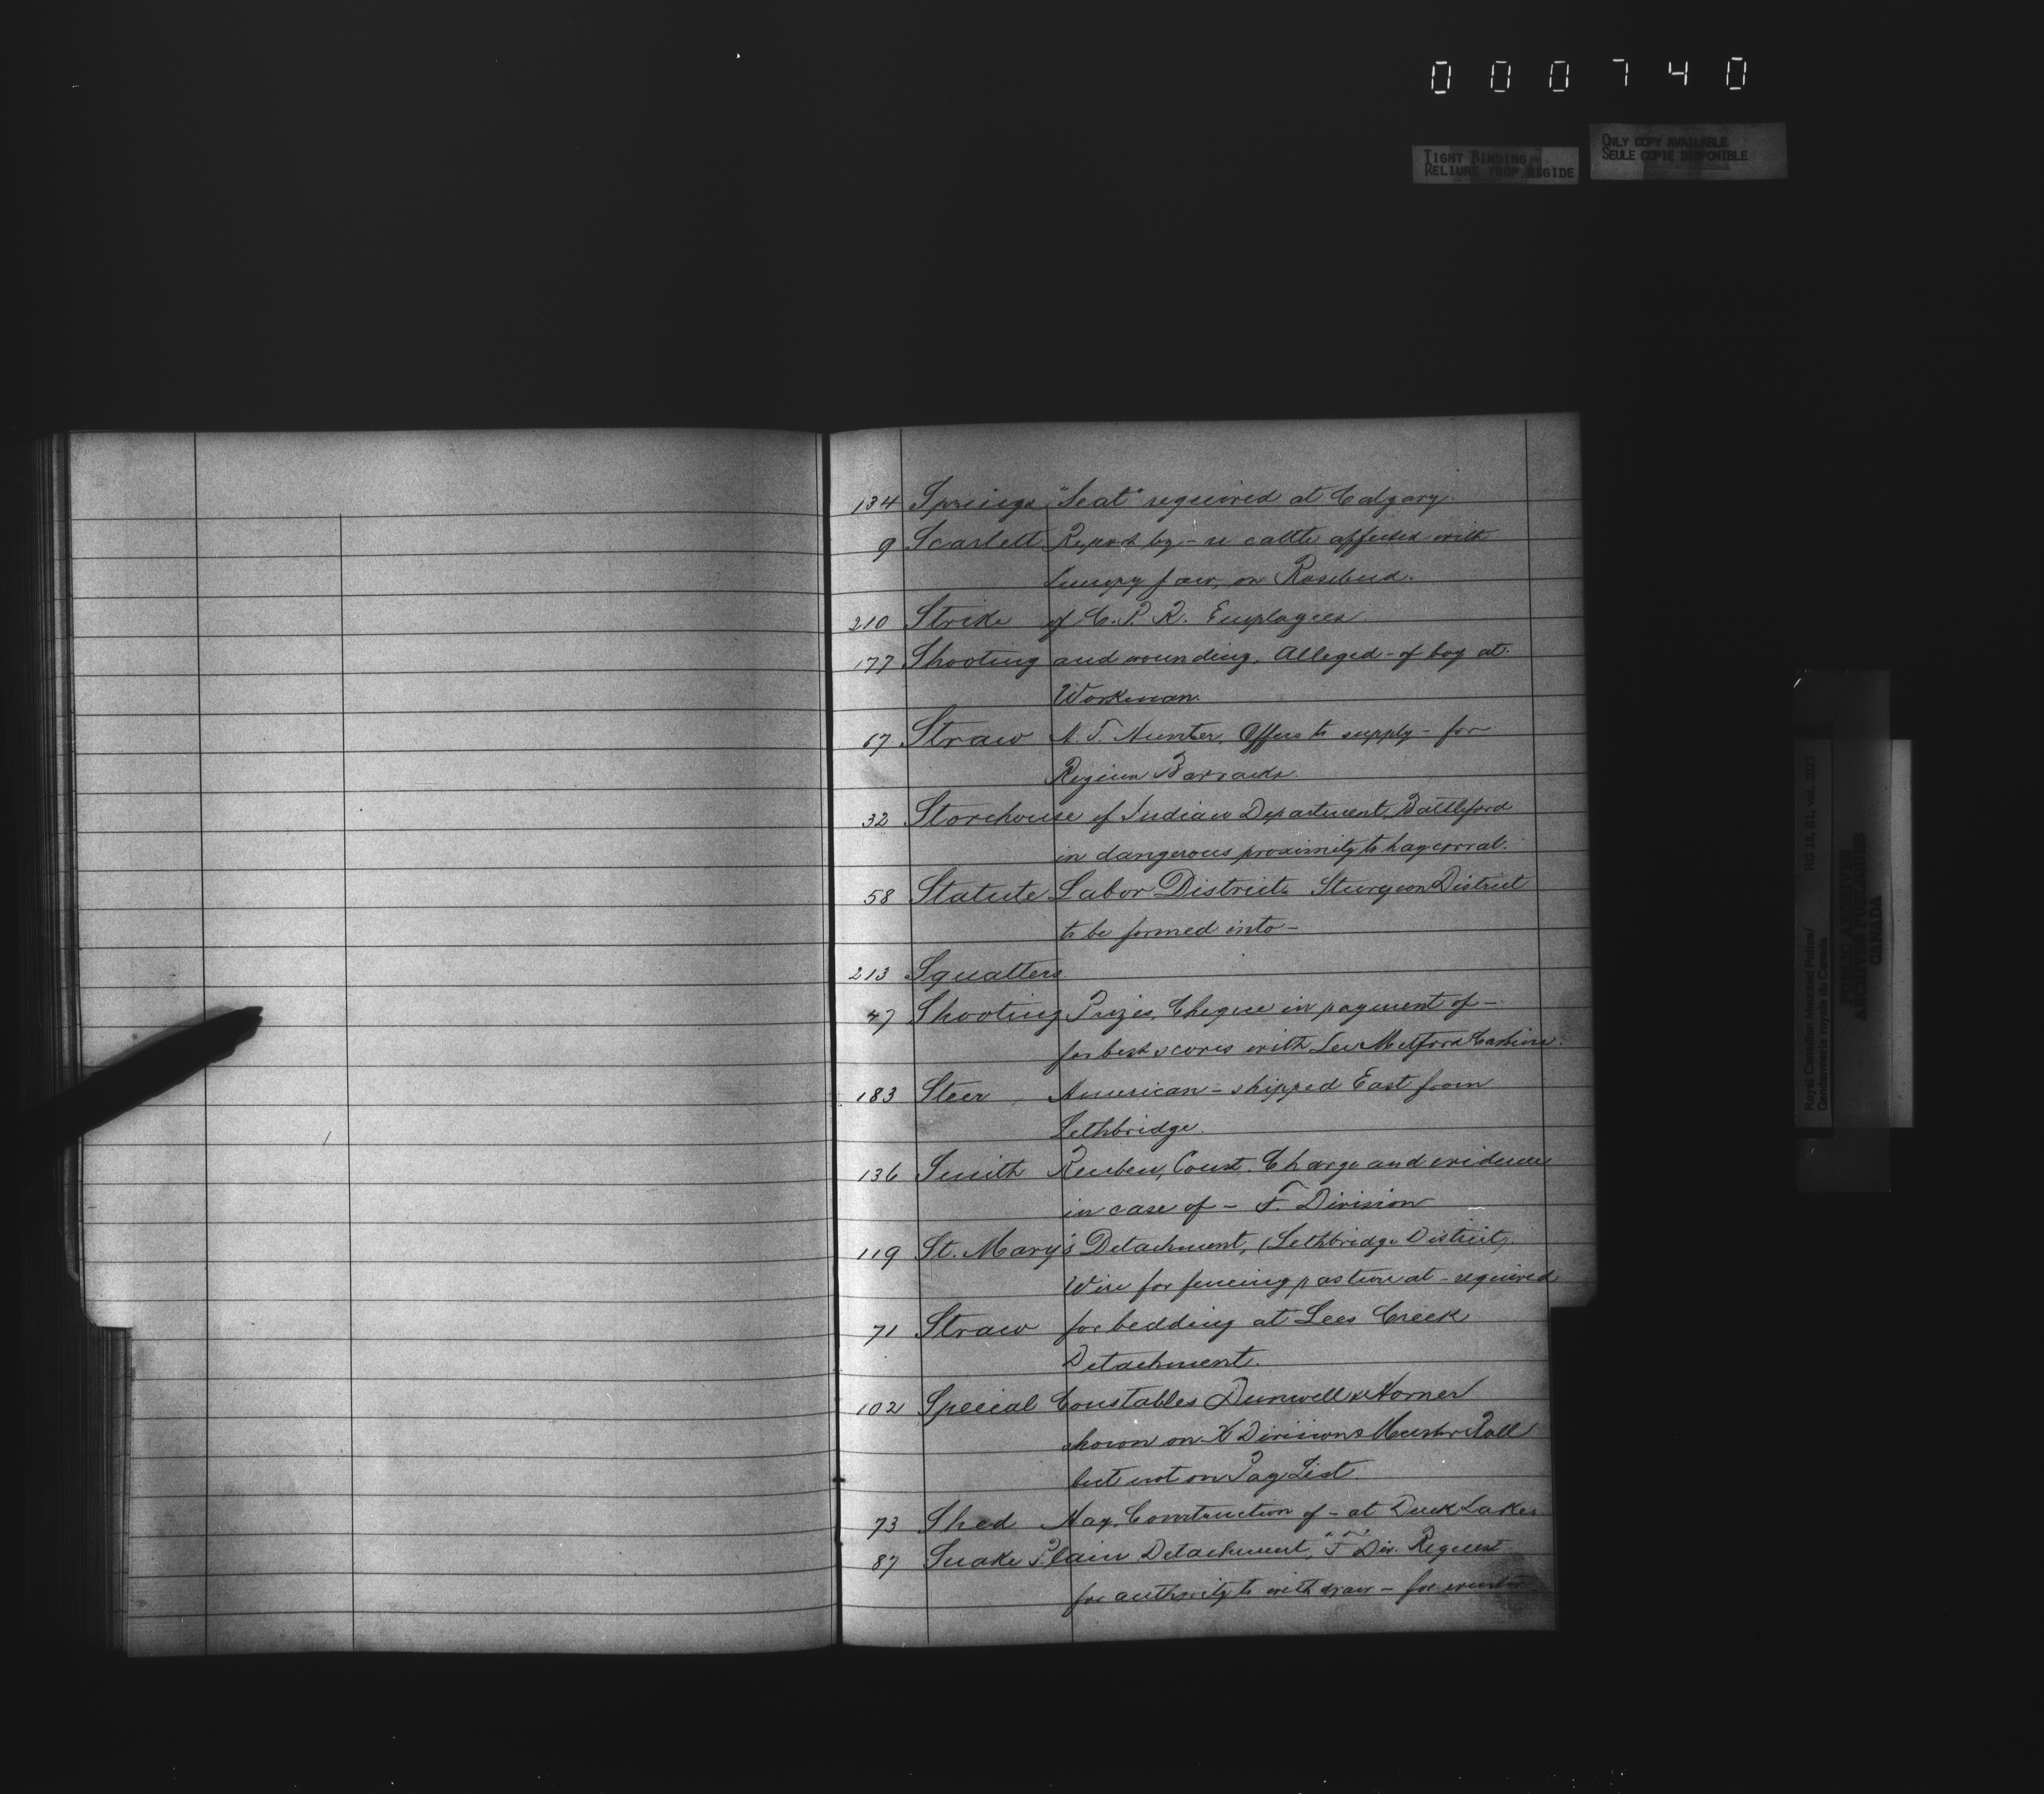 000740
TIGHT BINDING
RELIURE TROP RIGIDE
ONLY COPY AVAILABLE
SEULE COPIE DISPONIBLE
134 Springs, "Seat" required at Calgary.
9 Scarlett Report by - re cattle affected with
lumpy jaw, on Rosebud.
210 Strike of C.P.R. Employees.
177 Shooting and wounding, Alleged - of boy at
Workman.
67 Straw N.T. Hunter, Offers to supply - for
Regina Barracks.
32 Storehouse of Indian Department, Battleford
in dangerous proximity to hay corral.
58 Statute Labor District. Sturgeon District
to be formed into -
213 Squatters.
47 Shooting Prizes, Cheque in payment of -
for best scores with Lee Metford Carbine.
183 Steer American - shipped East from
Lethbridge.
136 Smith Reuben, Const. Charge and evidence
in case of - F. Division
119 St. Mary's Detachment, (Lethbridge District).
Wire for fencing pasture at - required
71 Straw for bedding at Lees Creek
Detachment.
102 Special Constables Dunwell & Horner
shown on K Divisions Muster Roll
but not on Pay List.
73 Shed Hay, Construction of - at Duck Lake.
87 Snake Plain Detachment, "F" Div. Request
for authority to withdraw - for winter
Royal Canadian Mounted Police/
Gendarmerie royale du Canada
RG 18, B1, vol. 2023
PUBLIC ARCHIVES
ARCHIVES PUBLIQUES
CANADA